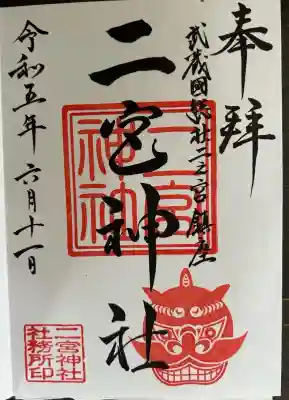 奉拝
武蔵國総社二之宮鎮座
二宮神社
二宮神社
令和五年 六月十一日
二宮神社
社務所印